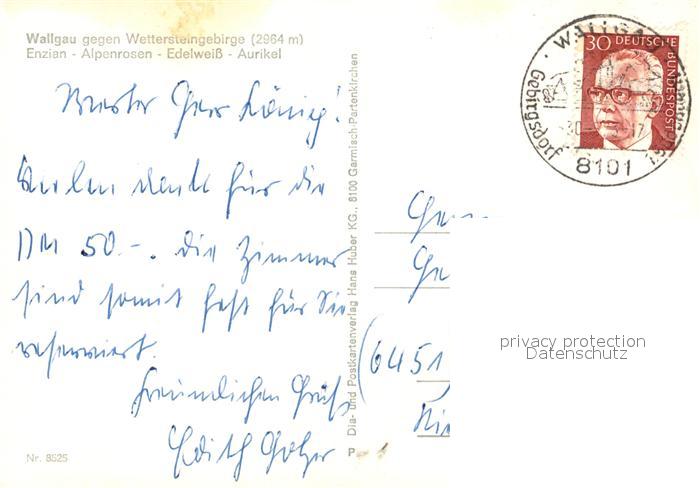 Wallgau gegen Wettersteingebirge (2964 m)
Enzian - Alpenrosen - Edelweiß - Aurikel
Werter Herr König!
Vielen Dank für die
DM 50.-. Die Zimmer
sind somit fest für Sie
reserviert.
Freundlichen Gruß
Edith
Nr. 8525
Dia- und Postkartenverlag Hans Huber KG., 8100 Garmisch-Partenkirchen
30 DEUTSCHE
BUNDESPOST
WALLGAU
Gebirgsdorf
8101
(6451
privacy protection
Datenschutz